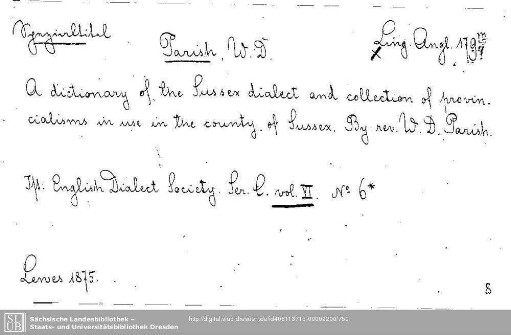 Spezialtitel
Parish, W. D.
Ling. Angl. 179
A dictionary of the Sussex dialect and collection of provin-
cialisms in use in the county of Sussex. By rev. W. D. Parish.
English Dialect Society. Ser. C. vol. VI. No 6*
Lewes 1875.
8
Sächsische Landesbibliothek –
Staats- und Universitätsbibliothek Dresden